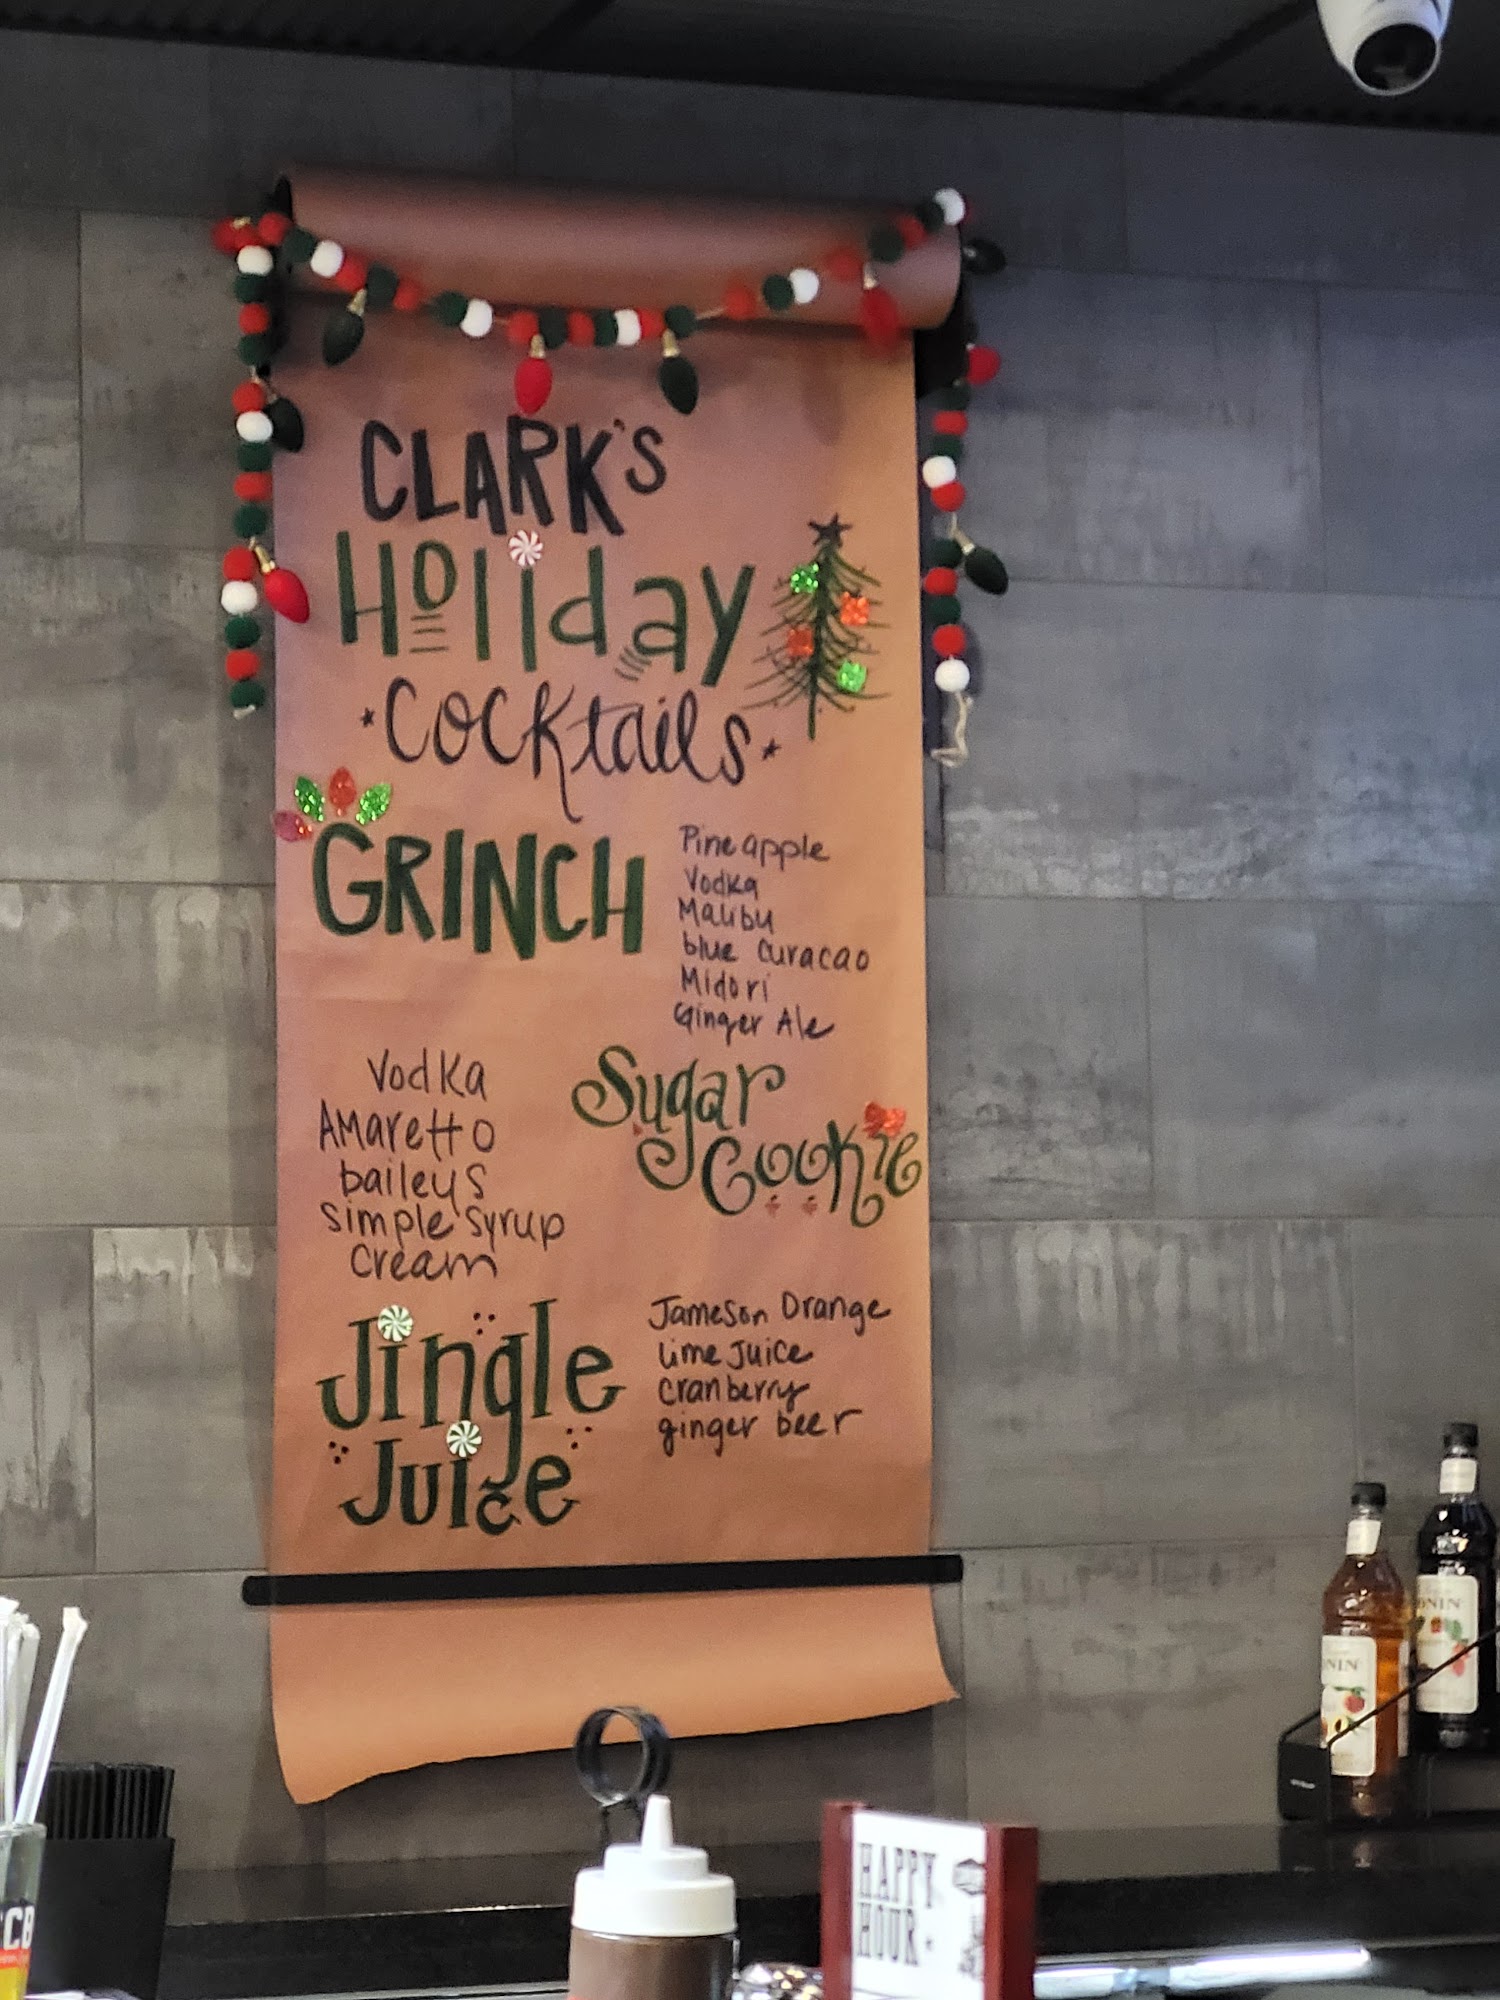 CLARK'S
Holiday
Cocktails
GRINCH
Pineapple
Vodka
Malibu
blue Curacao
Midori
Ginger Ale
Sugar
Cookie
Vodka
Amaretto
baileys
simple syrup
Cream
Jingle
Juice
Jameson Orange
Lime Juice
Cranberry
ginger beer
HAPPY
HOUR